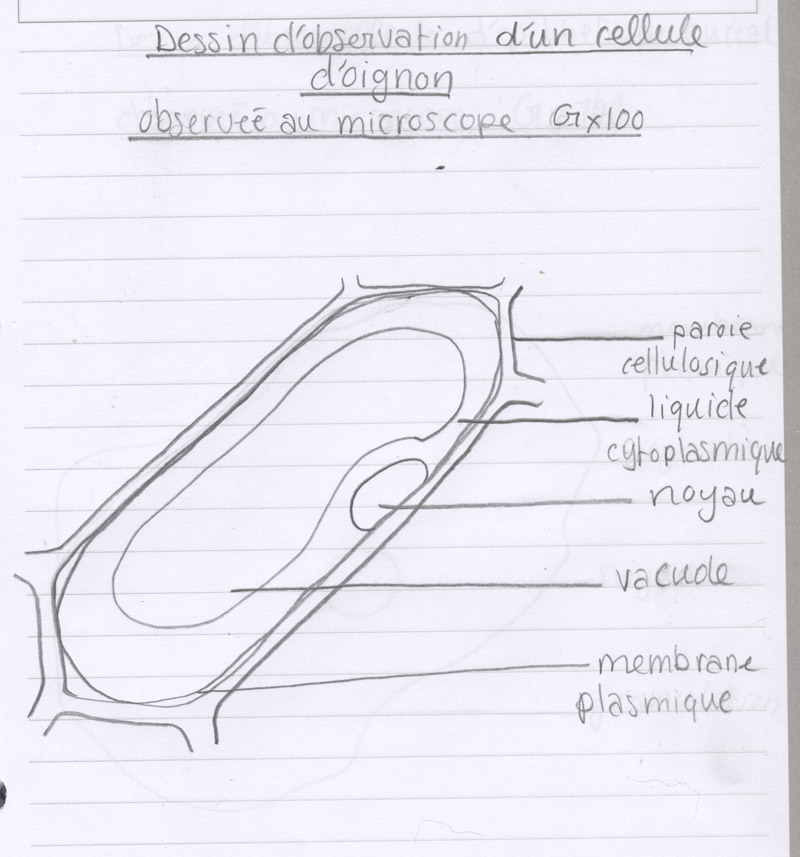 Dessin d'observation d'un cellule
d'oignon
observeé au microscope Gx100
paroie
cellulosique
liquide
cytoplasmique
noyau
vacuole
membrane
plasmique